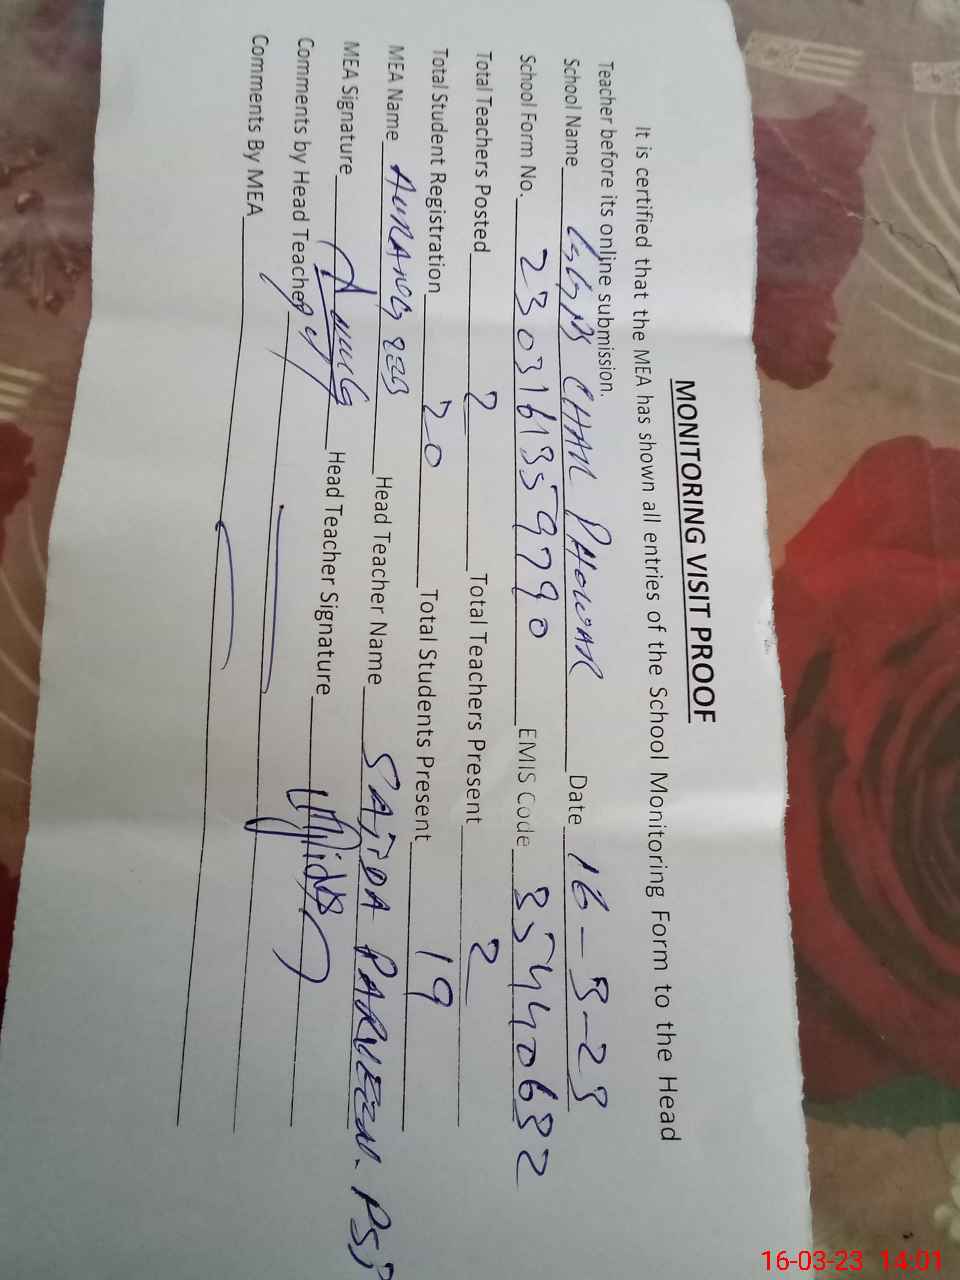 MONITORING VISIT PROOF
It is certified that the MEA has shown all entries of the School Monitoring Form to the Head
Teacher before its online submission.
School Name GGPS CHAH PAHOWAR Date 16-3-23
School Form No. 2303161359790 EMIS Code 35440632
Total Teachers Posted 2 Total Teachers Present 2
Total Student Registration 20 Total Students Present 19
MEA Name AURANGZEB Head Teacher Name SAJIDA PARVEEN. PST
MEA Signature Head Teacher Signature
Comments by Head Teacher
Comments By MEA
16-03-23 14:01